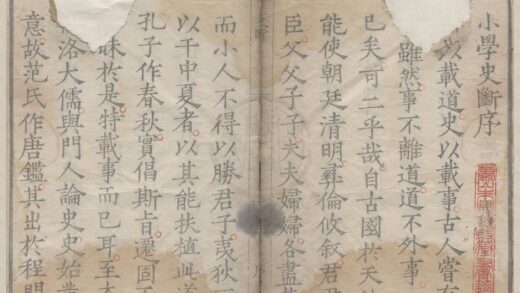 小學史斷序
以載道史以載事古人嘗有
雖然事不離道道不外事
已矣可二乎哉自古國於天
能使朝廷清明彝倫攸叙君
臣父父子子夫夫婦婦各盡
而小人不得以勝君子夷狄
以干中夏者以其能扶植此
孔子作春秋實倡斯旨遷固
昧於是特載事而已耳至
洛大儒與門人論史史始
意故范氏作唐鑑其出於程門